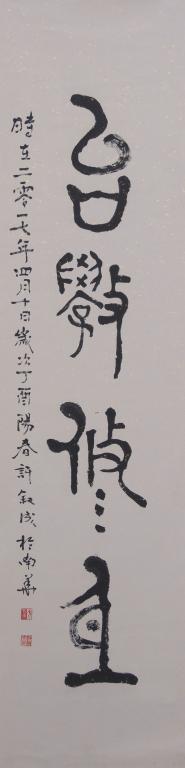 台斆攸直
時在二零一七年四月十日歲次丁酉陽春許叙成於南華